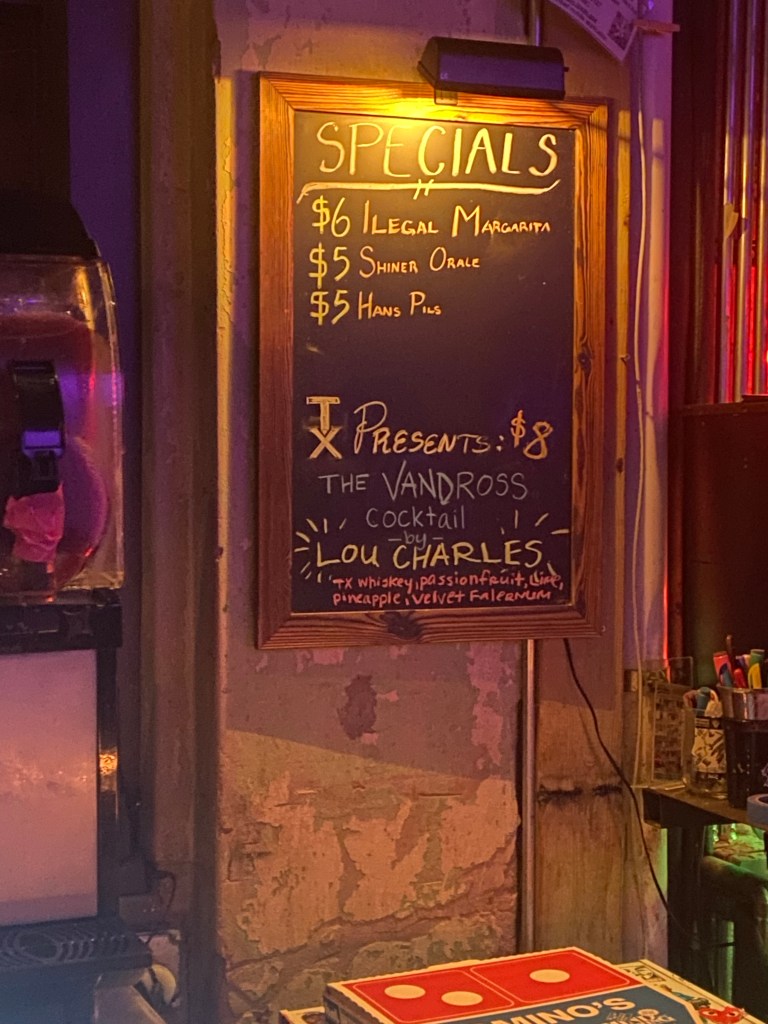 SPECIALS
$6 ILEGAL MARGARITA
$5 SHINER ORALE
$5 HANS PILS
TX PRESENTS: $8
THE VANDROSS
COCKTAIL
-by-
LOU CHARLES
TX whiskey, passionfruit, lime,
pineapple, velvet FALERNUM
MINO'S